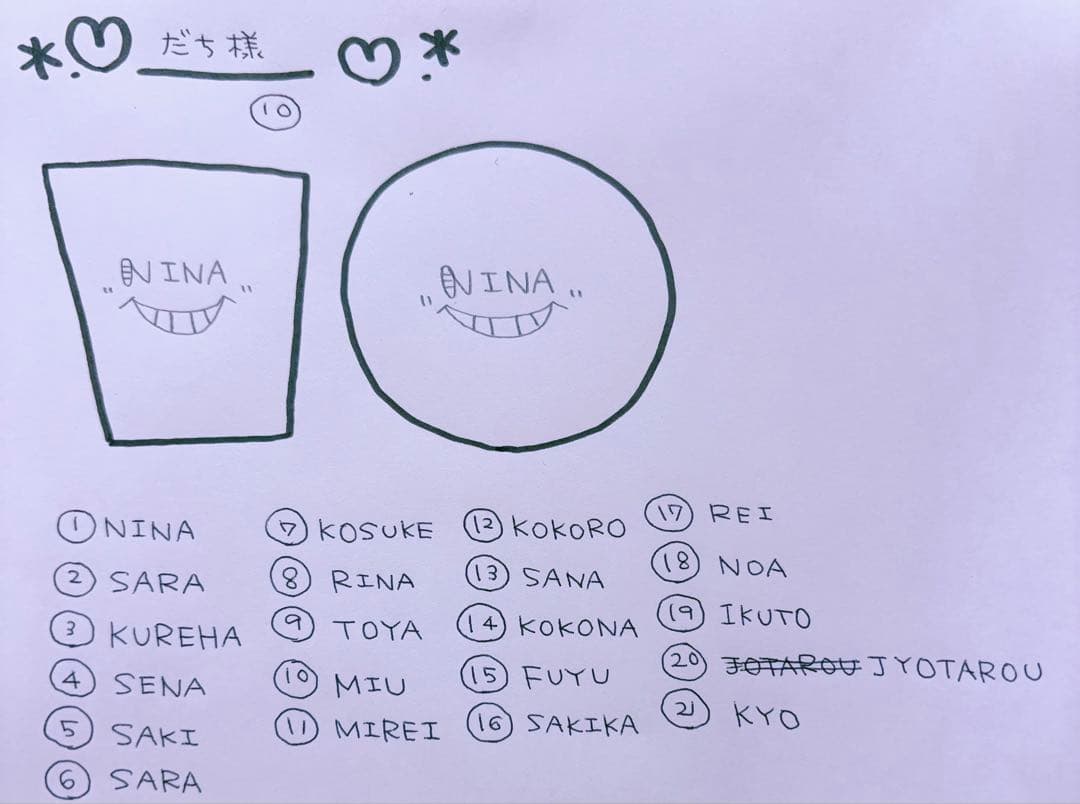 だち様
⑩
NINA
NINA
① NINA
② SARA
③ KUREHA
④ SENA
⑤ SAKI
⑥ SARA
⑦ KOSUKE
⑧ RINA
⑨ TOYA
⑩ MIU
⑪ MIREI
⑫ KOKORO
⑬ SANA
⑭ KOKONA
⑮ FUYU
⑯ SAKIKA
⑰ REI
⑱ NOA
⑲ IKUTO
⑳ JOTAROU JYOTAROU
㉑ KYO